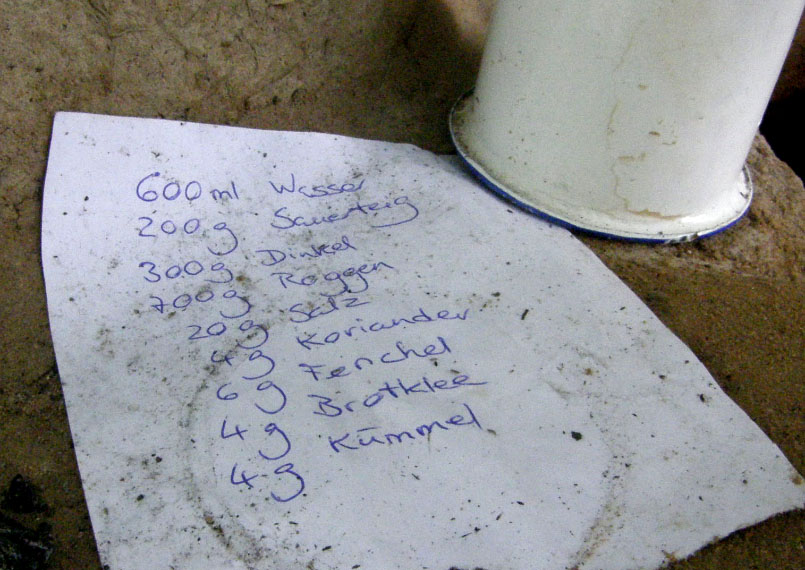 600ml Wasser
200g Sauerteig
300g Dinkel
700g Roggen
20g Salz
4g Koriander
6g Fenchel
4g Brotklee
4g Kümmel